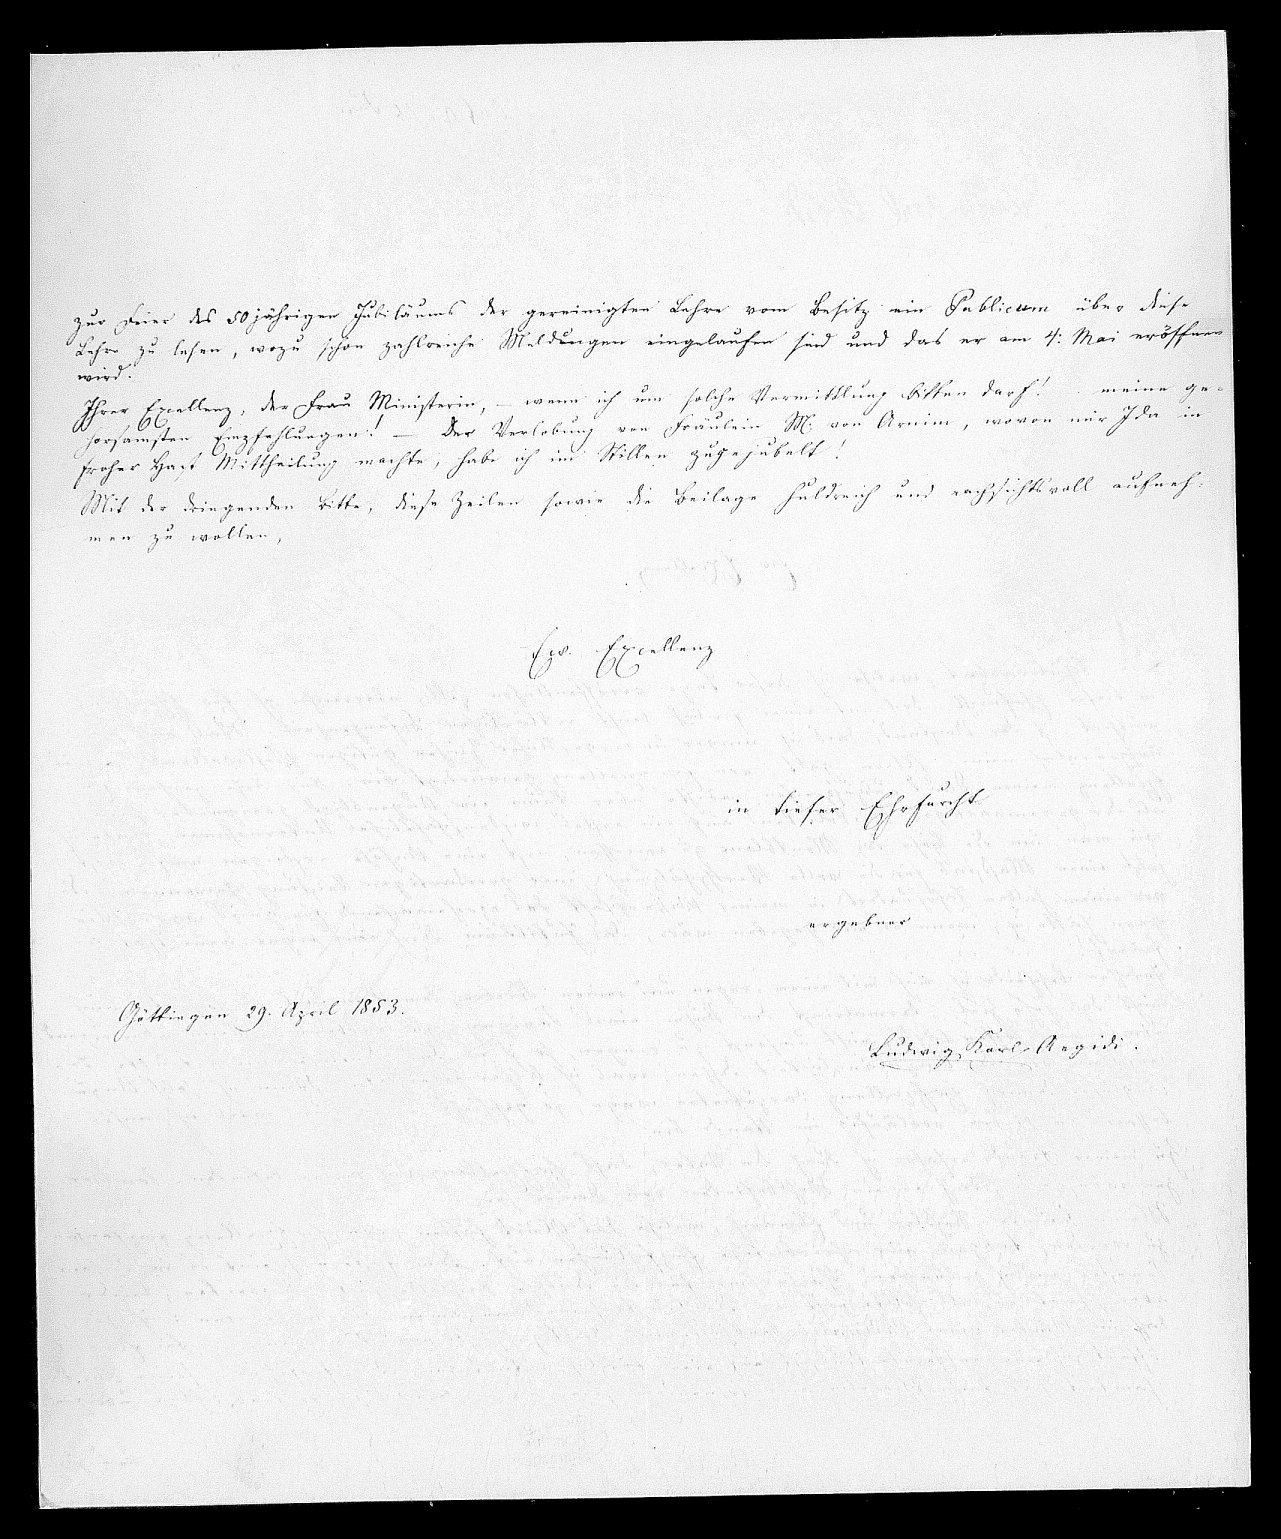 zur Feier des 50jährigen Jubiläums der gereinigten Lehre vom Besitz ein Publicum über diese
Lehre zu lesen, wozu schon zahlreiche Meldungen eingelaufen sind und das er am 4: Mai eröffnen
wird.
Ihrer Excellenz, der Frau Ministerin, – wenn ich um solche Vermittlung bitten darf! meine ge-
horsamsten Empfehlungen! – Der Verlobung von Fräulein M. von Arnim, wovon mir Ida in
froher Hast Mittheilung machte, habe ich im Stillen zugejubelt!
Mit der dringenden Bitte, diese Zeilen sowie die Beilage huldreich und nachsichtsvoll aufneh-
men zu wollen,
Ew. Excellenz
in tiefer Ehrfurcht
ergebner
Göttingen 29. April 1853.
Ludwig Karl Aegidi.